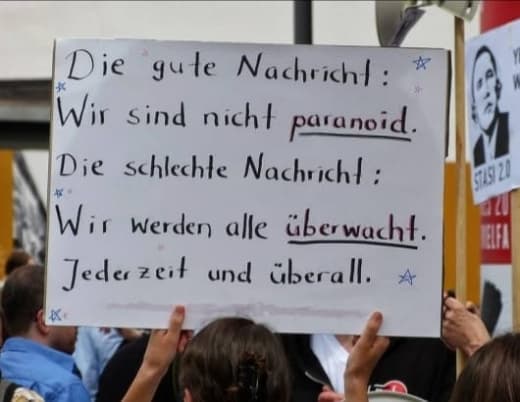 Die gute Nachricht:
Wir sind nicht paranoid.
Die schlechte Nachricht:
Wir werden alle überwacht.
Jederzeit und überall.
STASI 2.0